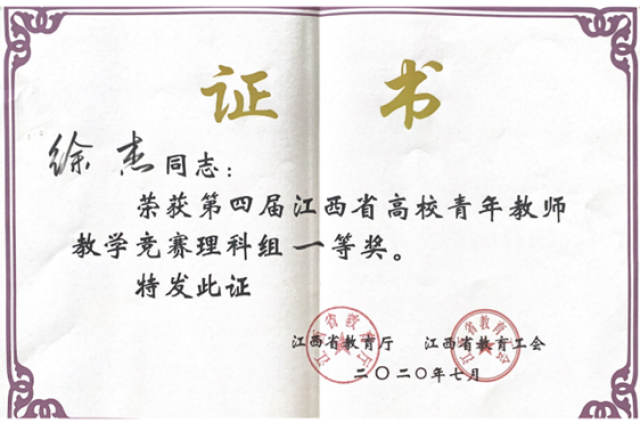 证书
徐杰同志：
荣获第四届江西省高校青年教师
教学竞赛理科组一等奖。
特发此证
江西省教育厅 江西省教育工会
二〇二〇年七月
江西省教育厅
江西省教育工会